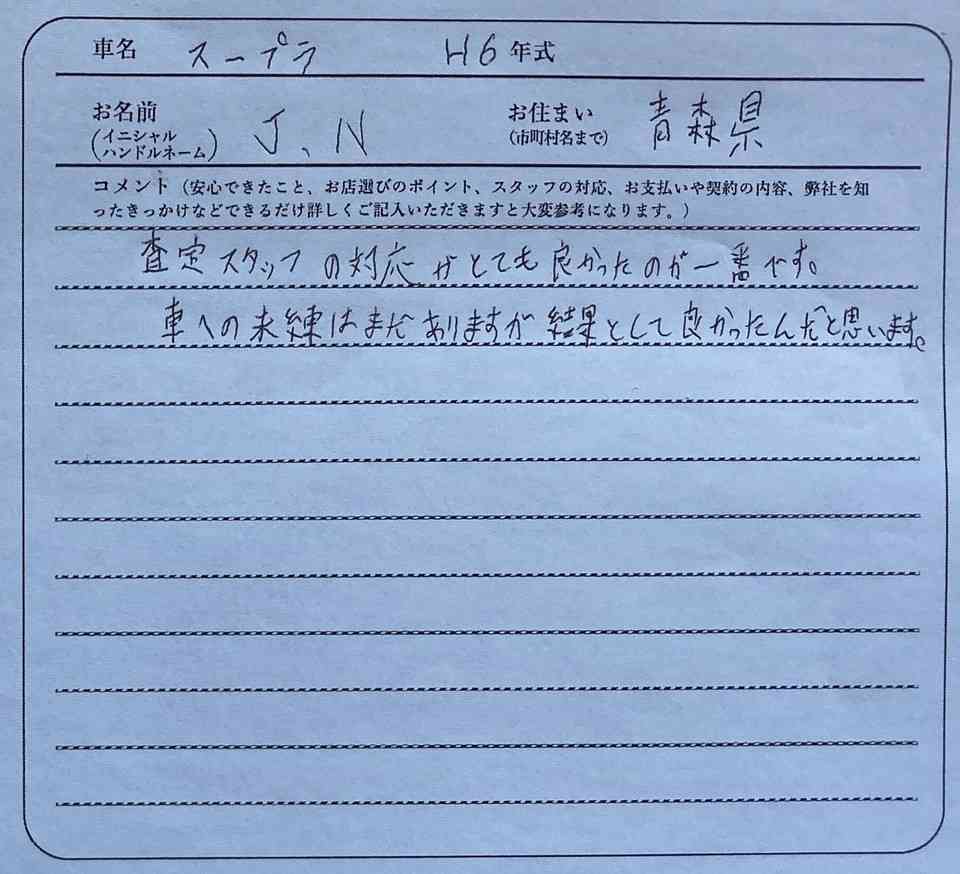 車名 スープラ H6 年式
お名前 (イニシャル ハンドルネーム) J、N お住まい (市町村名まで) 青森県
コメント（安心できたこと、お店選びのポイント、スタッフの対応、お支払いや契約の内容、弊社を知
ったきっかけなどできるだけ詳しくご記入いただきますと大変参考になります。）
査定スタッフの対応がとても良かったのが一番です。
車への未練はまだありますが結果として良かったんだと思います。